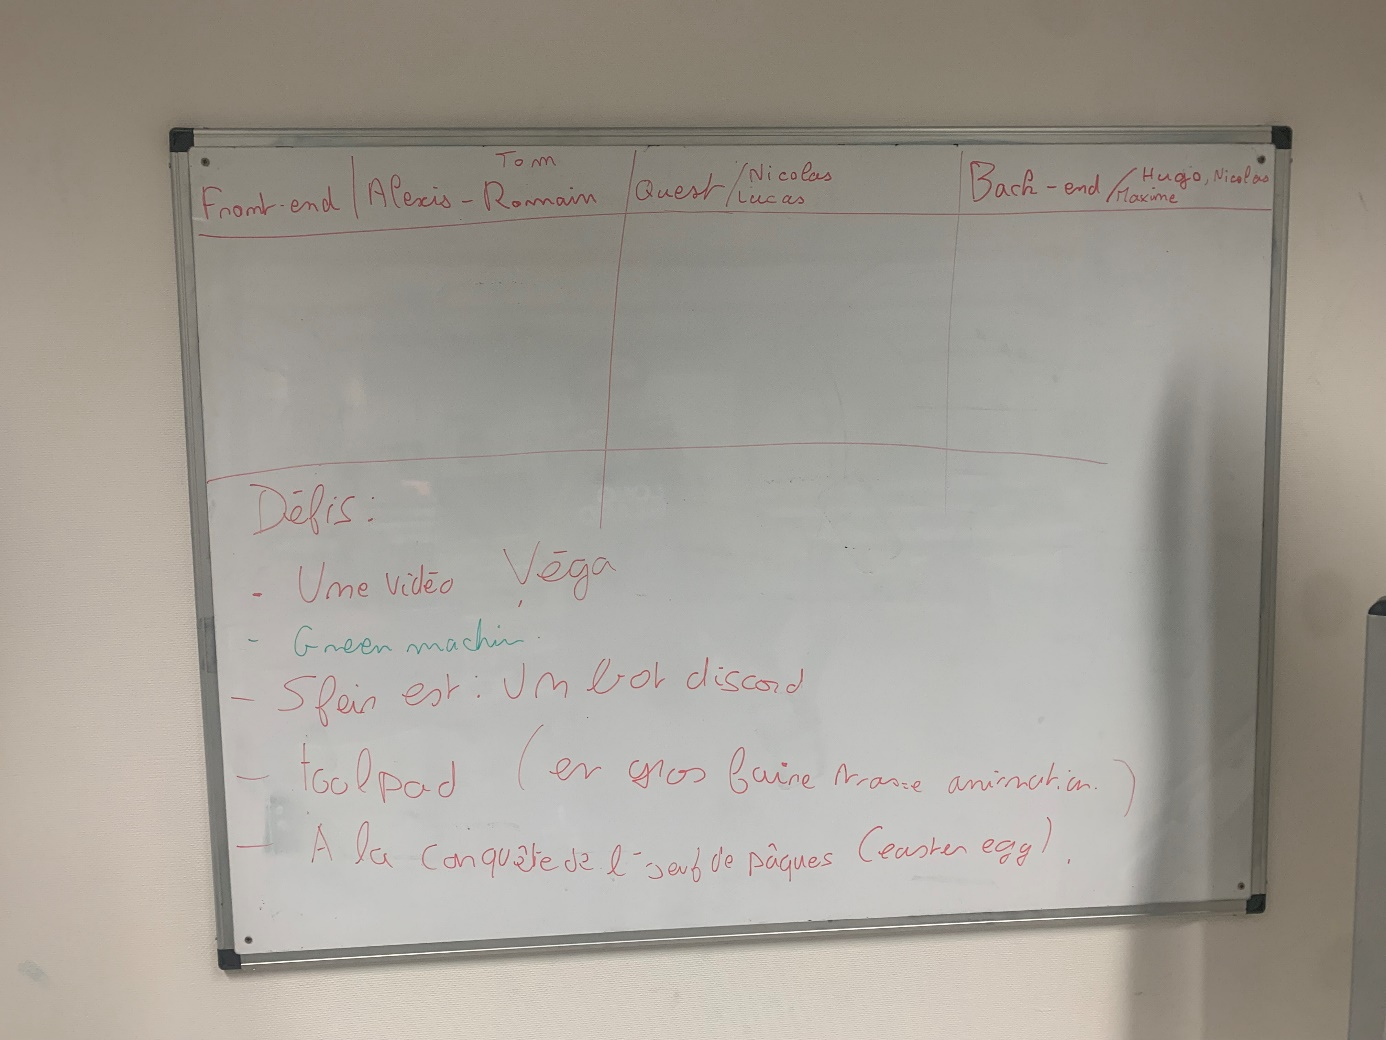 Tom
Front-end / Alexis - Romain
Quest / Nicolas
Lucas
Back-end / Hugo, Nicolas
Maxime
Défis :
- Une vidéo Véga
- Green machin.
- est : Un bot discord
- toolpad (en gros faire masse animation.)
- A la conquête de l'oeuf de pâques (easter egg).